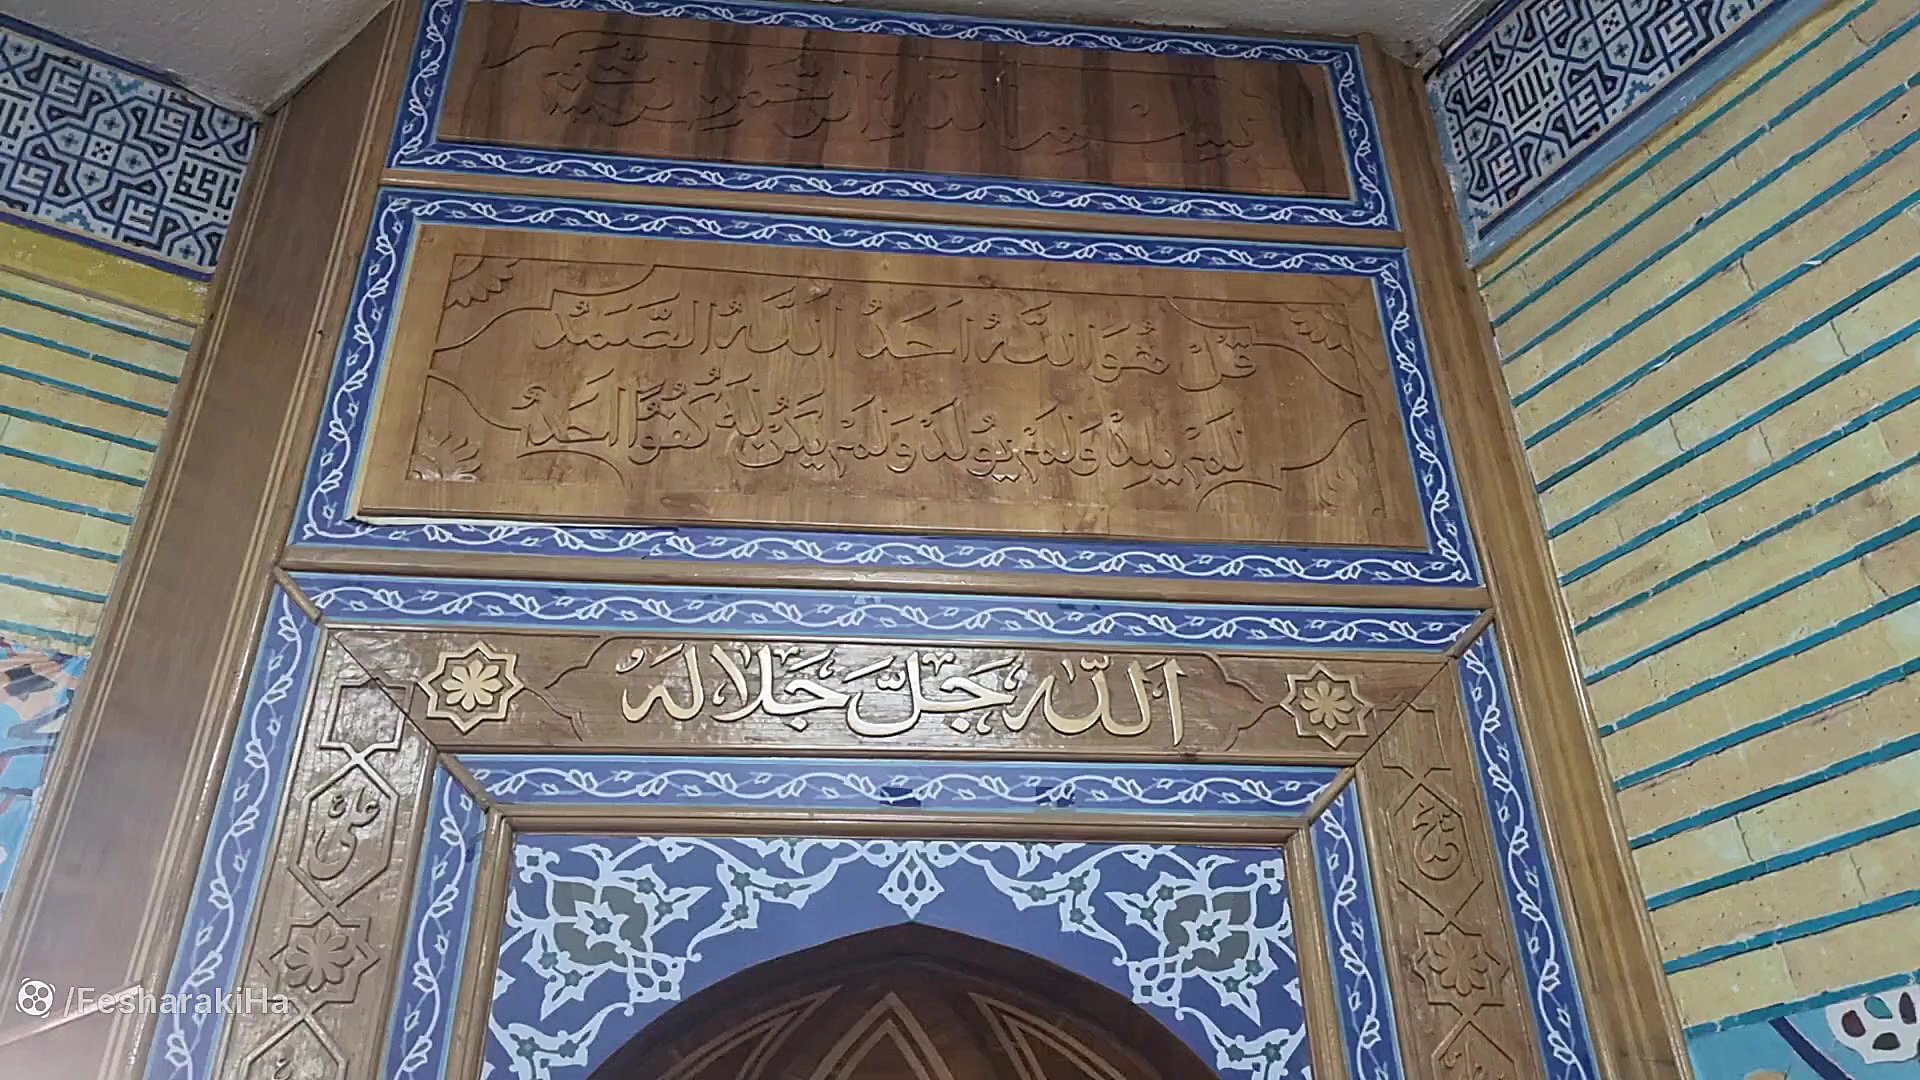 بسم الله الرحمن الرحیم
قُلْ هُوَ اللَّهُ أَحَدٌ اللَّهُ الصَّمَدُ
لَمْ یَلِدْ وَلَمْ یُولَدْ وَلَمْ یَکُنْ لَهُ کُفُوًا أَحَدٌ
اَللّٰه جَلَّ جَلَالَهُ
علی
/FesharakiHa